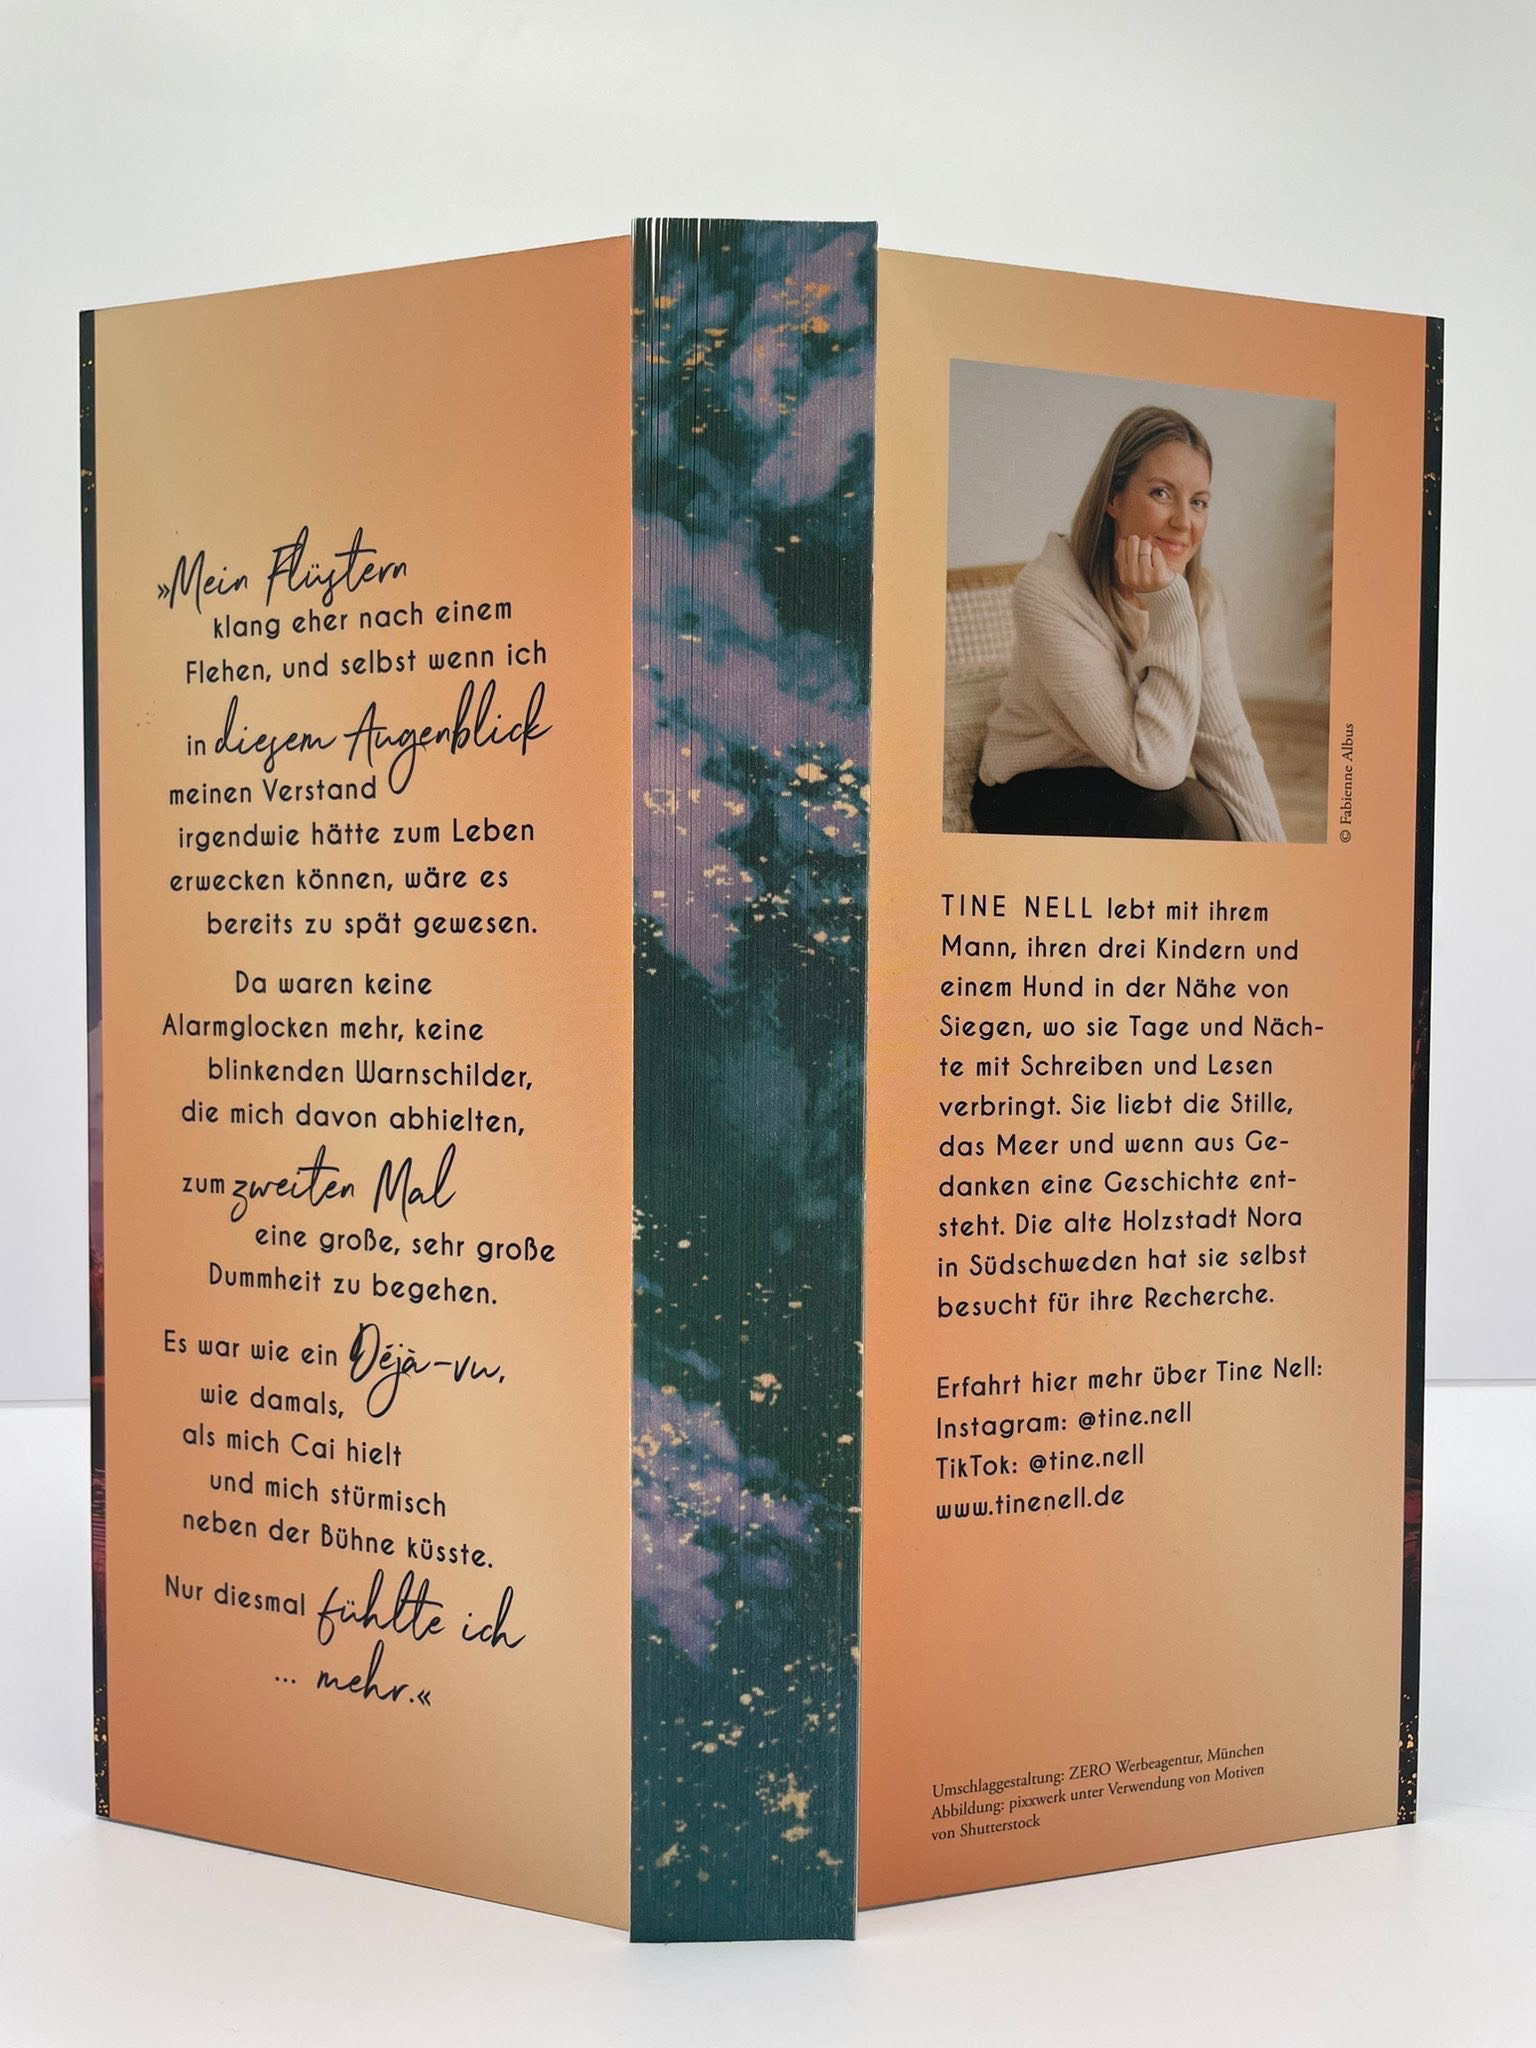 »Mein Flüstern
klang eher nach einem
Flehen, und selbst wenn ich
in diesem Augenblick
meinen Verstand
irgendwie hätte zum Leben
erwecken können, wäre es
bereits zu spät gewesen.
Da waren keine
Alarmglocken mehr, keine
blinkenden Warnschilder,
die mich davon abhielten,
zum zweiten Mal
eine große, sehr große
Dummheit zu begehen.
Es war wie ein Déjà-vu,
wie damals,
als mich Cai hielt
und mich stürmisch
neben der Bühne küsste.
Nur diesmal fühlte ich
... mehr.«
© Fabienne Albus
TINE NELL lebt mit ihrem
Mann, ihren drei Kindern und
einem Hund in der Nähe von
Siegen, wo sie Tage und Näch-
te mit Schreiben und Lesen
verbringt. Sie liebt die Stille,
das Meer und wenn aus Ge-
danken eine Geschichte ent-
steht. Die alte Holzstadt Nora
in Südschweden hat sie selbst
besucht für ihre Recherche.
Erfahrt hier mehr über Tine Nell:
Instagram: @tine.nell
TikTok: @tine.nell
www.tinenell.de
Umschlaggestaltung: ZERO Werbeagentur, München
Abbildung: pixxwerk unter Verwendung von Motiven
von Shutterstock